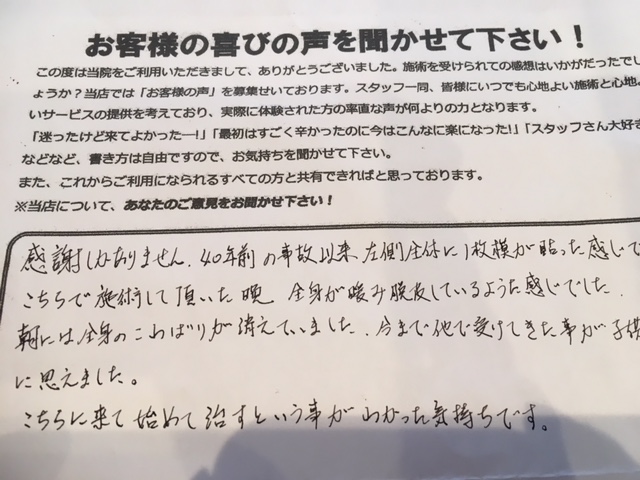 お客様の喜びの声を聞かせて下さい!
この度は当院をご利用いただきまして、ありがとうございました。施術を受けられての感想はいかがだったでし
ょうか?当店では「お客様の声」を募集せいております。スタッフ一同、皆様にいつでも心地よい施術と心地よ
いサービスの提供を考えており、実際に体験された方の率直な声が何よりの力となります。
「迷ったけど来てよかった―!」「最初はすごく辛かったのに今はこんなに楽になった!」「スタッフさん大好き
などなど、書き方は自由ですので、お気持ちを聞かせて下さい。
また、これからご利用になられるすべての方と共有できればと思っております。
※当店について、あなたのご意見をお聞かせ下さい!
感謝しかありません。40年前の事故以来、左側全体に1枚膜が貼った感じで
こちらで施術して頂いた晩、全身が緩み脱皮しているような感じでした。
朝には全身のこわばりが消えていました。今まで他で受けてきた事が子供
に思えました。
こちらに来て始めて治すという事がわかった気持ちです。